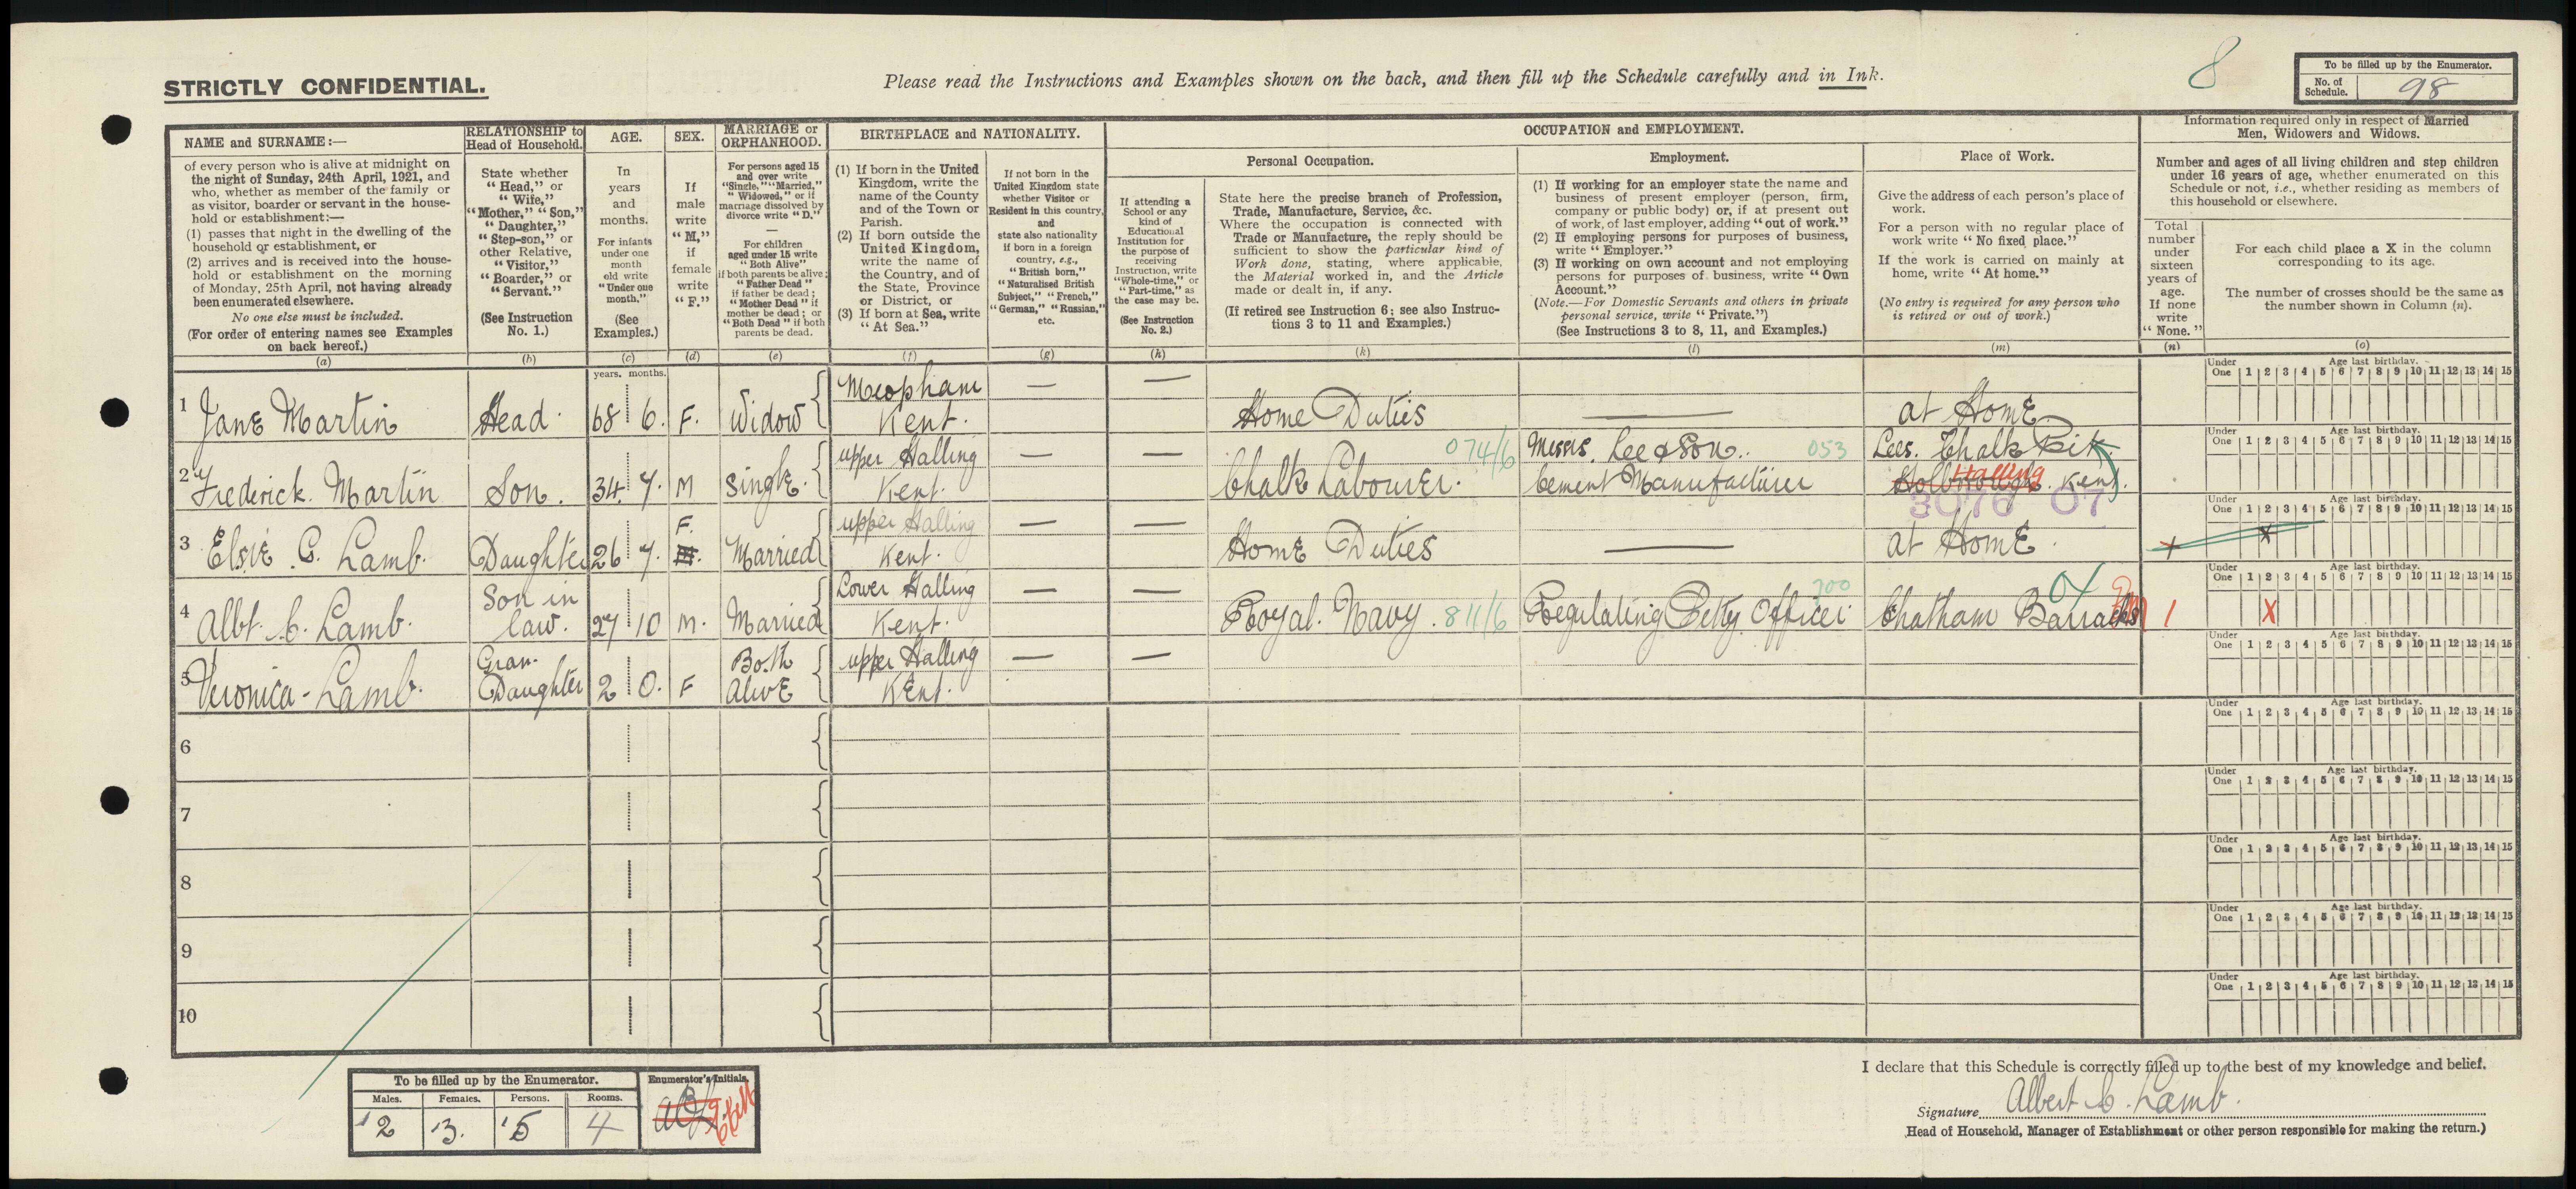 STRICTLY CONFIDENTIAL.
Please read the Instructions and Examples shown on the back, and then fill up the Schedule carefully and in Ink.
8
To be filled up by the Enumerator.
No. of Schedule. 98
NAME and SURNAME:—
of every person who is alive at midnight on
the night of Sunday, 24th April, 1921, and
who, whether as member of the family or
as visitor, boarder or servant in the house-
hold or establishment:—
(1) passes that night in the dwelling of the
household or establishment, or
(2) arrives and is received into the house-
hold or establishment on the morning
of Monday, 25th April, not having already
been enumerated elsewhere.
No one else must be included.
(For order of entering names see Examples
on back hereof.)
(a)
RELATIONSHIP to
Head of Household.
State whether
"Head," or
"Wife,"
"Mother," "Son,"
"Daughter,"
"Step-son," or
other Relative,
"Visitor,"
"Boarder," or
"Servant."
(See Instruction
No. 1.)
(b)
AGE.
In
years
and
months.
For infants
under one
month
old write
"Under one
month."
(See
Examples.)
(c)
SEX.
If
male
write
"M,"
if
female
write
"F."
(d)
MARRIAGE or
ORPHANHOOD.
For persons aged 15
and over write
"Single," "Married,"
"Widowed," or if
marriage dissolved by
divorce write "D."
—
For children
aged under 15 write
"Both Alive"
if both parents be alive;
"Father Dead"
if father be dead;
"Mother Dead" if
mother be dead; or
"Both Dead" if both
parents be dead.
(e)
BIRTHPLACE and NATIONALITY.
(1) If born in the United
Kingdom, write the
name of the County
and of the Town or
Parish.
(2) If born outside the
United Kingdom,
write the name of
the Country, and of
the State, Province
or District, or
(3) If born at Sea, write
"At Sea."
(f)
If not born in the
United Kingdom state
whether Visitor or
Resident in this country,
and
state also nationality
if born in a foreign
country, e.g.,
"British born,"
"Naturalised British
Subject," "French,"
"German," "Russian,"
etc.
(g)
OCCUPATION and EMPLOYMENT.
If attending a
School or any
kind of
Educational
Institution for
the purpose of
receiving
Instruction, write
"Whole-time," or
"Part-time," as
the case may be.
(See Instruction
No. 2.)
(h)
Personal Occupation.
State here the precise branch of Profession,
Trade, Manufacture, Service, &c.
Where the occupation is connected with
Trade or Manufacture, the reply should be
sufficient to show the particular kind of
Work done, stating, where applicable,
the Material worked in, and the Article
made or dealt in, if any.
(If retired see Instruction 6; see also Instruc-
tions 3 to 11 and Examples.)
(k)
Employment.
(1) If working for an employer state the name and
business of present employer (person, firm,
company or public body) or, if at present out
of work, of last employer, adding "out of work."
(2) If employing persons for purposes of business,
write "Employer."
(3) If working on own account and not employing
persons for purposes of business, write "Own
Account."
(Note.—For Domestic Servants and others in private
personal service, write "Private.")
(See Instructions 3 to 8, 11, and Examples.)
(l)
Place of Work.
Give the address of each person's place of
work.
For a person with no regular place of
work write "No fixed place."
If the work is carried on mainly at
home, write "At home."
(No entry is required for any person who
is retired or out of work.)
(m)
Information required only in respect of Married
Men, Widowers and Widows.
Number and ages of all living children and step children
under 16 years of age, whether enumerated on this
Schedule or not, i.e., whether residing as members of
this household or elsewhere.
Total
number
under
sixteen
years of
age.
If none
write
"None."
(n)
For each child place a X in the column
corresponding to its age.
The number of crosses should be the same as
the number shown in Column (n).
(o)
years. months.
Under One Age last birthday. 1 2 3 4 5 6 7 8 9 10 11 12 13 14 15
1 Jane Martin Head. 68 6. F. Widow Meopham Kent. — — Home Duties — at Home
Under One Age last birthday. 1 2 3 4 5 6 7 8 9 10 11 12 13 14 15
2 Frederick. Martin Son. 34. 7. M Single. upper Halling Kent. — — Chalk Labourer. 074/6 Messrs. Lee & Son. Cement Manufacturer 053 Lees. Chalk Pit Halling Kent.
3076 07
Under One Age last birthday. 1 2 3 4 5 6 7 8 9 10 11 12 13 14 15
3 Elsie C. Lamb. Daughter 26 7. F. Married upper Halling Kent. — — Home Duties — at Home. x x
Under One Age last birthday. 1 2 3 4 5 6 7 8 9 10 11 12 13 14 15
4 Albt. C. Lamb. Son in law. 27 10 M. Married Lower Halling Kent. — — Royal. Navy. 811/6 Regulating Petty Officer 700 Chatham Barracks 1 X
Under One Age last birthday. 1 2 3 4 5 6 7 8 9 10 11 12 13 14 15
5 Veronica - Lamb. Gran-Daughter 2 0. F Both Alive upper Halling Kent. — —
Under One Age last birthday. 1 2 3 4 5 6 7 8 9 10 11 12 13 14 15
6
Under One Age last birthday. 1 2 3 4 5 6 7 8 9 10 11 12 13 14 15
7
Under One Age last birthday. 1 2 3 4 5 6 7 8 9 10 11 12 13 14 15
8
Under One Age last birthday. 1 2 3 4 5 6 7 8 9 10 11 12 13 14 15
9
Under One Age last birthday. 1 2 3 4 5 6 7 8 9 10 11 12 13 14 15
10
To be filled up by the Enumerator.
Males. Females. Persons. Rooms.
2 3. 5 4
Enumerator's Initials.
I declare that this Schedule is correctly filled up to the best of my knowledge and belief.
Signature Albert C. Lamb.
Head of Household, Manager of Establishment or other person responsible for making the return.)